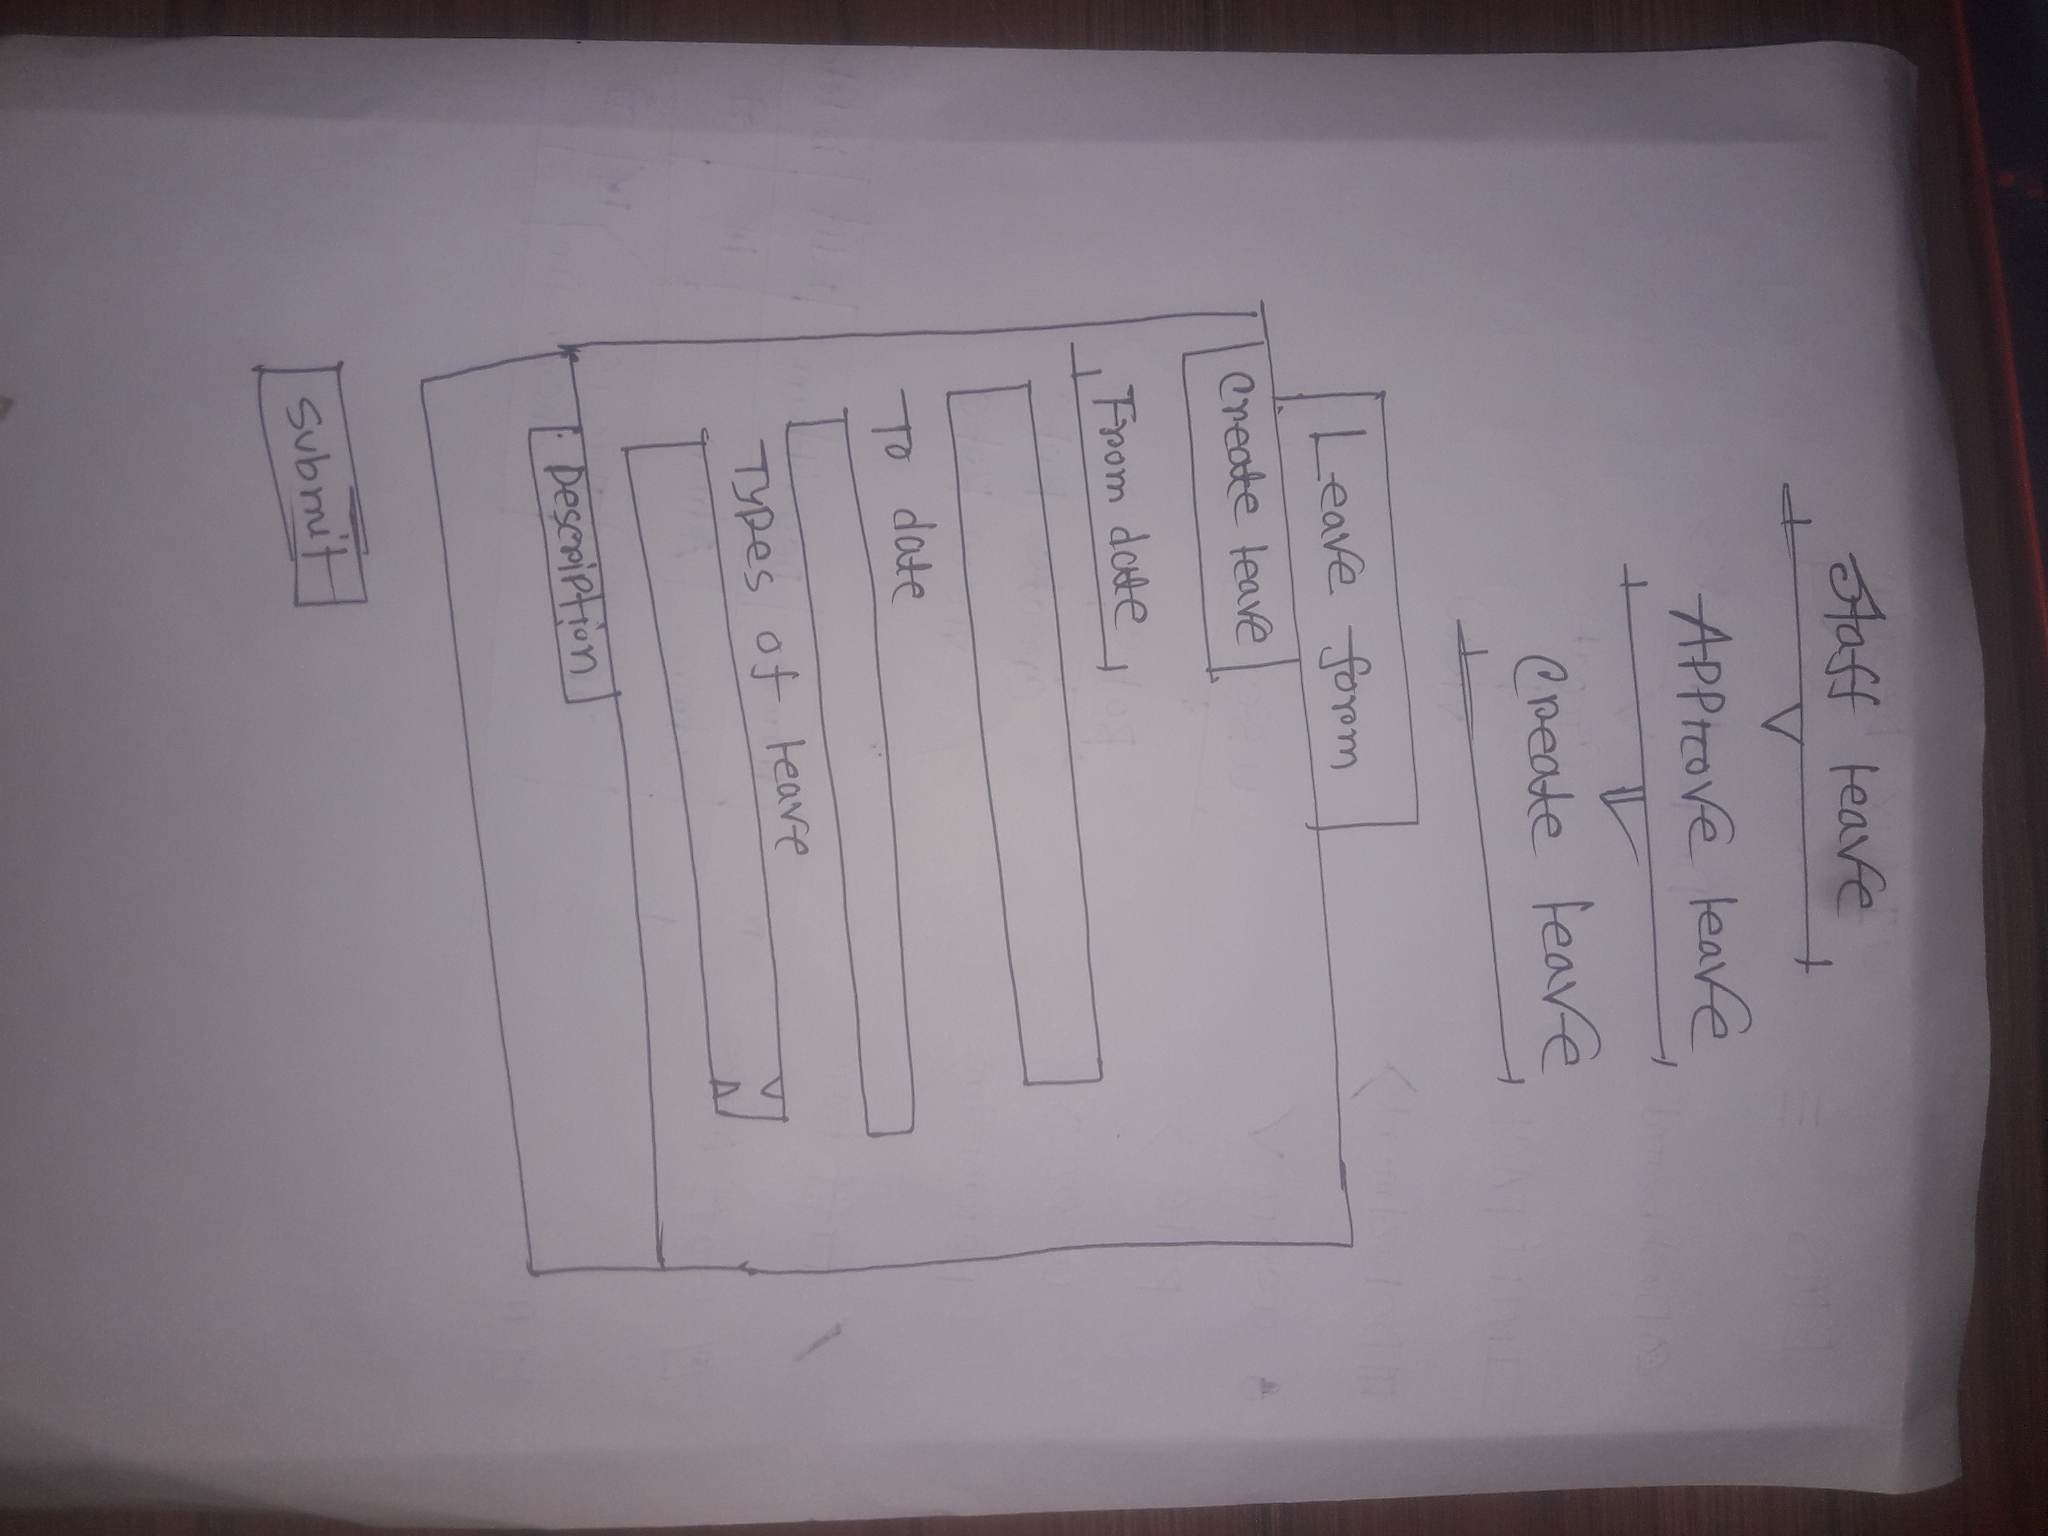 Staff leave
Approve leave
Create leave
Leave form
Create leave
From date
To date
Types of leave
Description
Submit